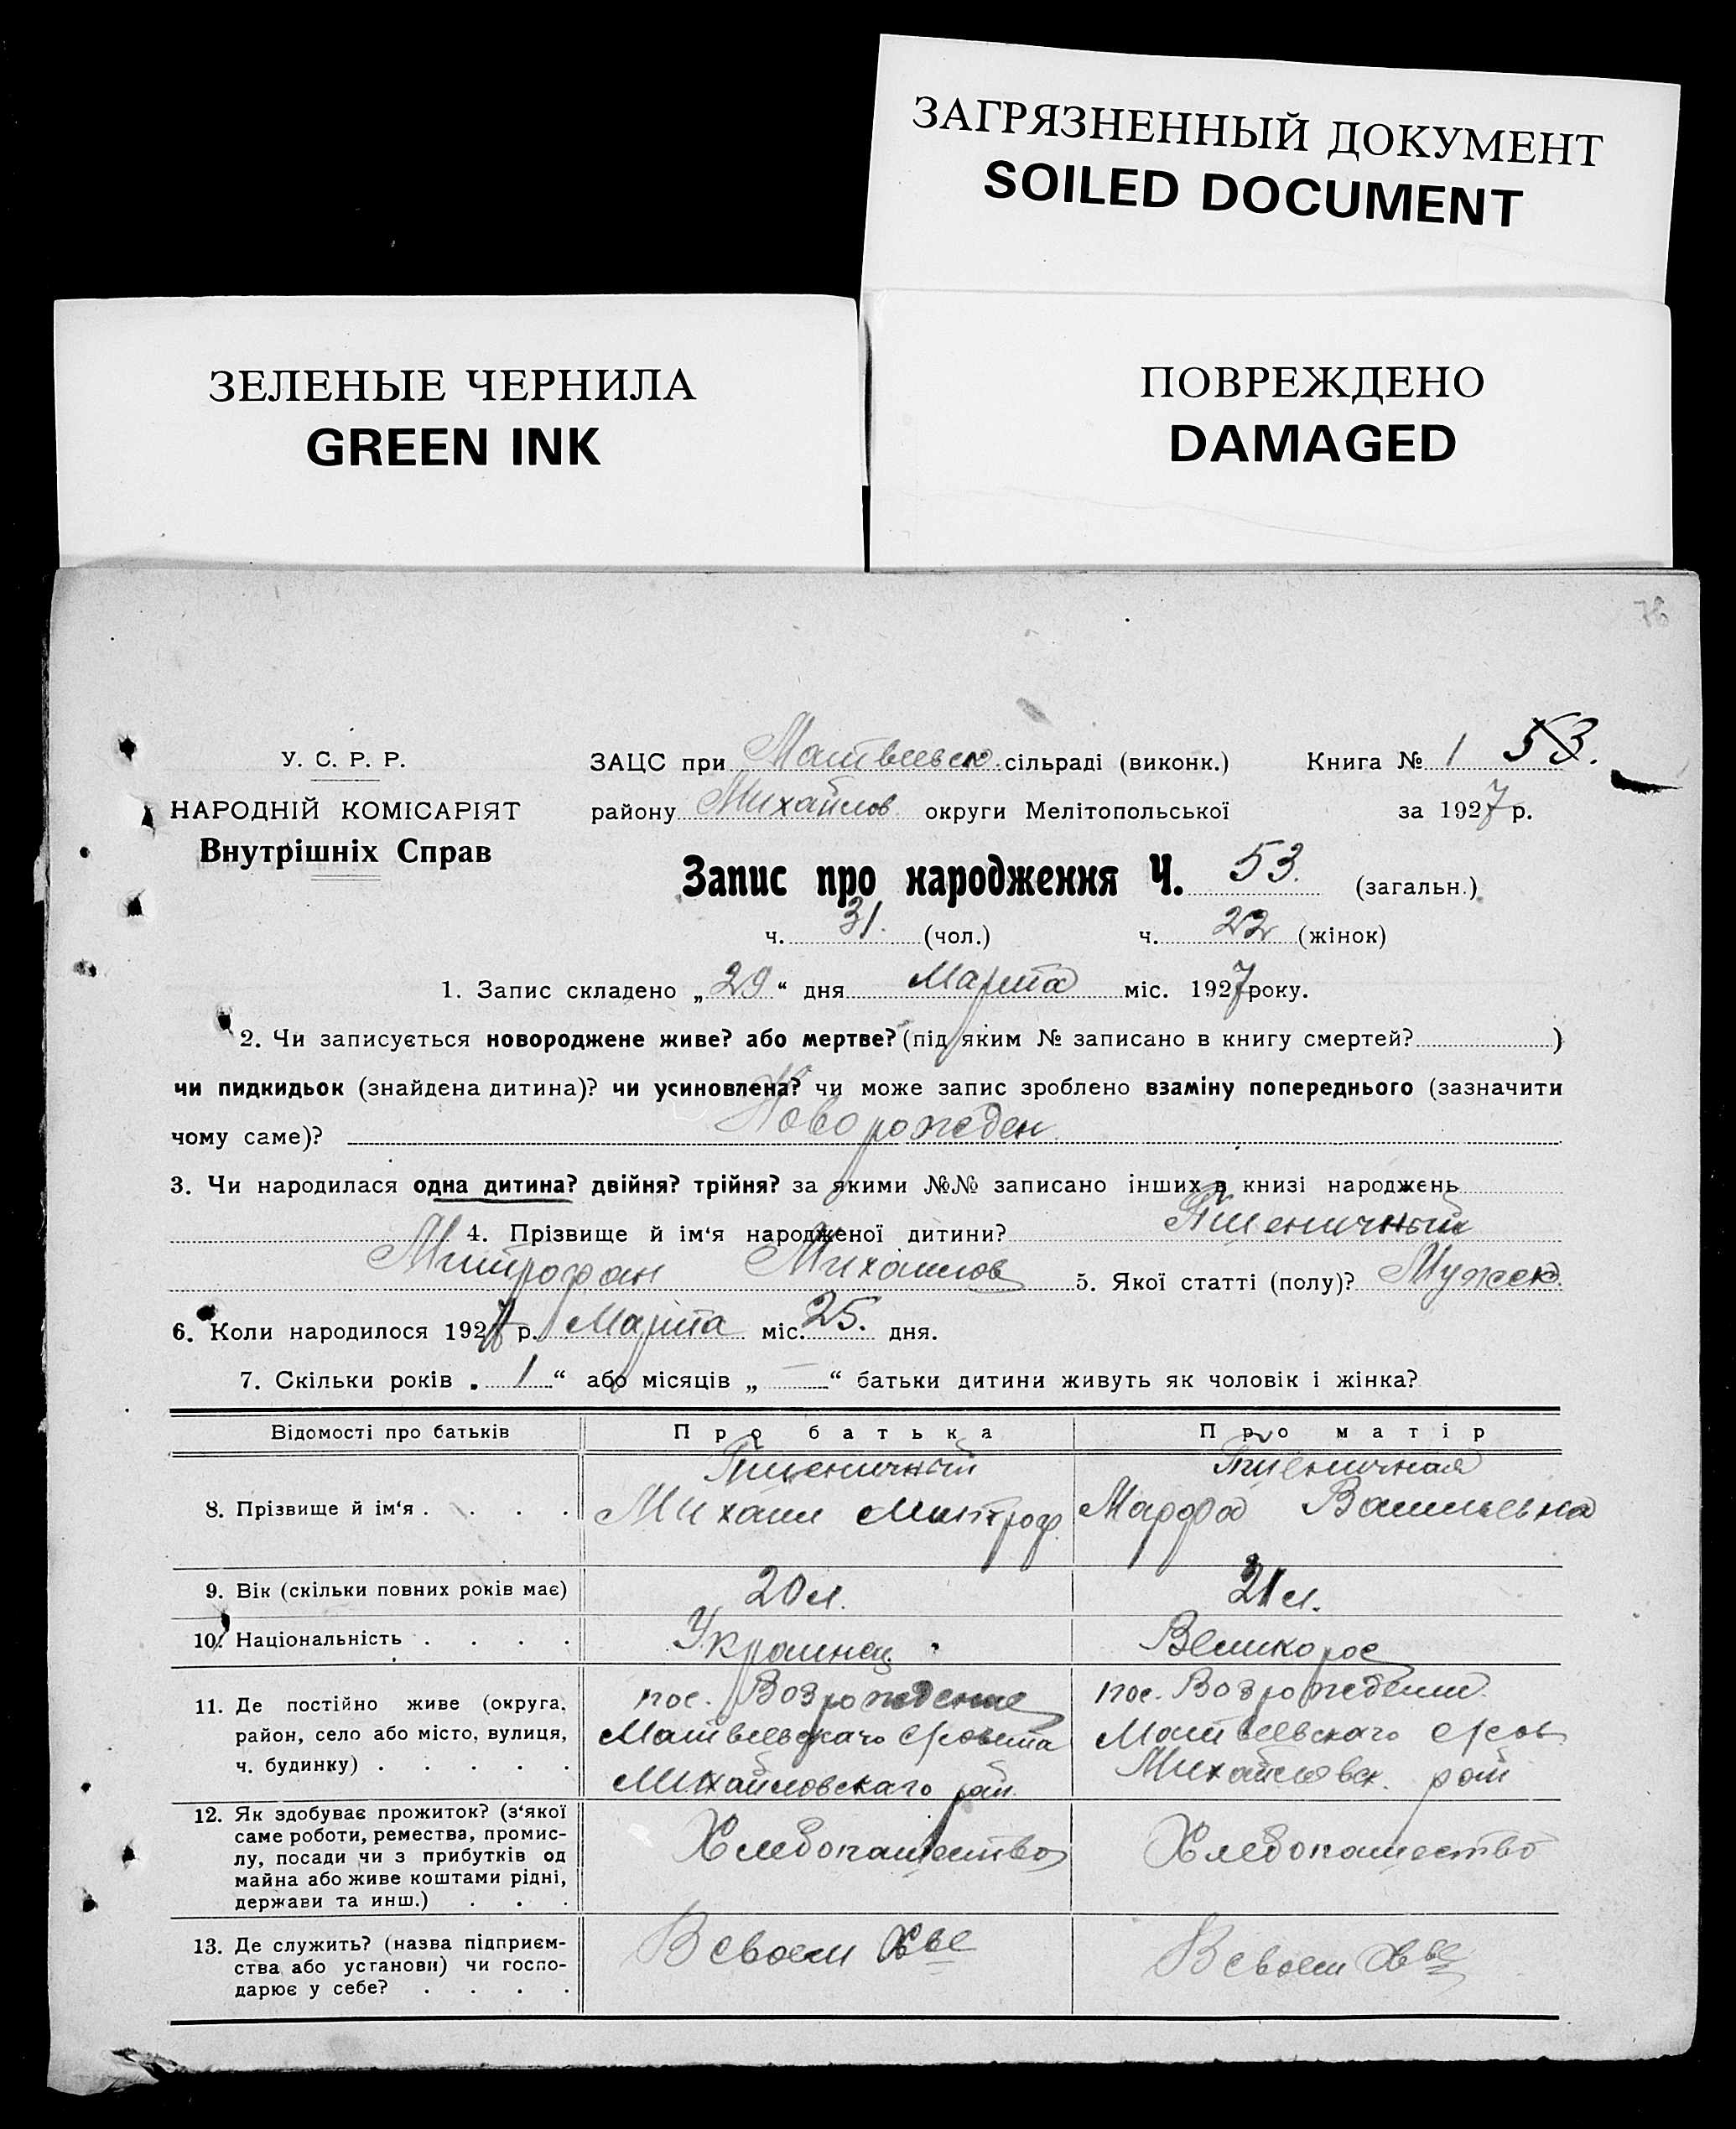 ЗАГРЯЗНЕННЫЙ ДОКУМЕНТ
SOILED DOCUMENT
ЗЕЛЕНЫЕ ЧЕРНИЛА
GREEN INK
ПОВРЕЖДЕНО
DAMAGED
76
У. С. Р. Р.
НАРОДНІЙ КОМІСАРІЯТ
Внутрішніх Справ
ЗАЦС при Матвеевск. сільраді (виконк.) Книга № 1 53.
району Михайлов округи Мелітопольської за 1927 р.
Запис про народження Ч. 53. (загальн.)
ч. 31. (чол.) ч. 22 (жінок)
1. Запис складено „29“ дня Марта міс. 1927 року.
2. Чи записується новороджене живе? або мертве? (під яким № записано в книгу смертей? )
чи пидкидьок (знайдена дитина)? чи усиновлена? чи може запис зроблено взаміну попереднього (зазначити
чому саме)? Новорожден
3. Чи народилася одна дитина? двійня? трійня? за якими №№ записано інших в книзі народжень
4. Прізвище й ім‘я народженої дитини? Пшеничный
Митрофан Михайлов 5. Якої статті (полу)? Мужск.
6. Коли народилося 1927 р. Марта міс. 25. дня.
7. Скільки років „ 1 “ або місяців „ — “ батьки дитини живуть як чоловік і жінка?
Відомості про батьків Про батька Про матір
8. Прізвище й ім‘я . . . . Пшеничный Пшеничная
Михаил Митроф. Марфа Васильевна
9. Вік (скільки повних років має) 20 л. 21 л.
10. Національність . . . . Украинец Великорос
11. Де постійно живе (округа, пос. Возрождение пос. Возрождении
район, село або місто, вулиця, Матвеевскаго Совета Матвеевскаго Сов.
ч. будинку) . . . . . Михайловскаго рай. Михайловск. рай
12. Як здобуває прожиток? (з‘якої
саме роботи, ремества, промис-
лу, посади чи з прибутків од Хлебопашество Хлебопашество
майна або живе коштами рідні,
держави та инш.) . . .
13. Де служить? (назва підприєм- В своем Хве В своем Хве
ства або установи) чи госпо-
дарює у себе? . . . .